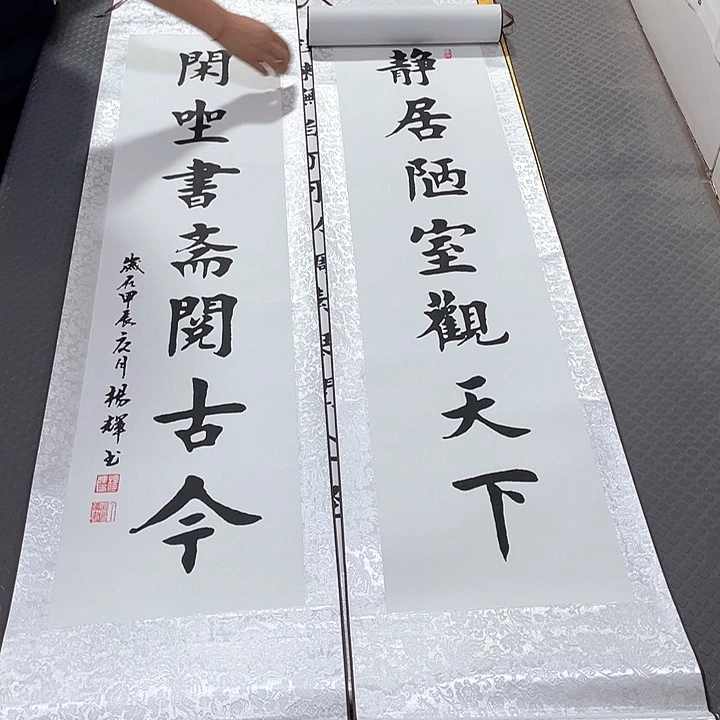 静居陋室觀天下
閑坐書斋閱古今
歲在甲辰夏月楊輝书